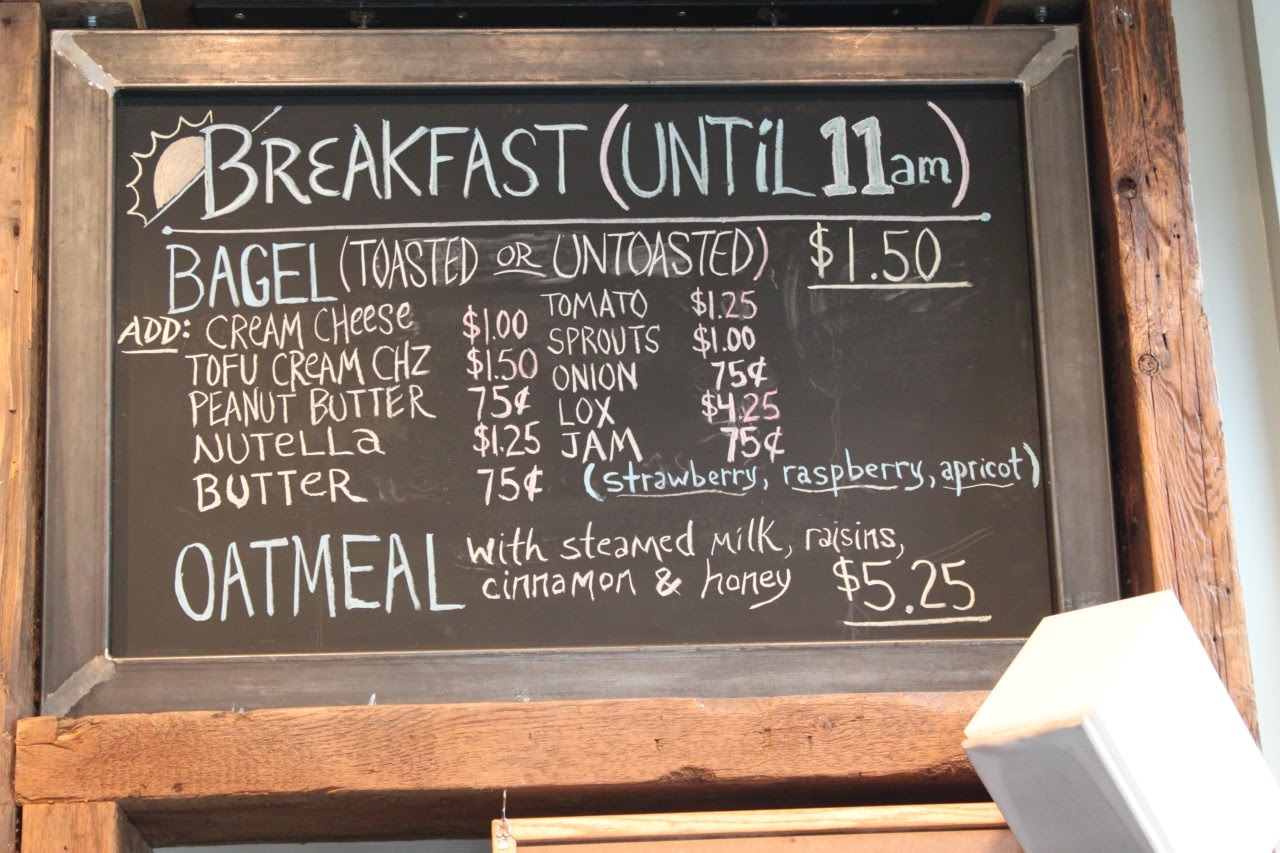 BREAKFAST (UNTiL 11am)
BAGEL (TOASTED OR UNTOASTED) $1.50
ADD: CREAM CHeeSe $1.00 TOMATO $1.25
TOFU CREAM CHZ $1.50 SPROUTS $1.00
PEANUT BUTTER 75¢ ONION 75¢
NUTeLLa $1.25 LOX $4.25
BUTTeR 75¢ JAM 75¢
(strawberry, raspberry, apricot)
OATMEAL with steamed milk, raisins,
cinnamon & honey $5.25